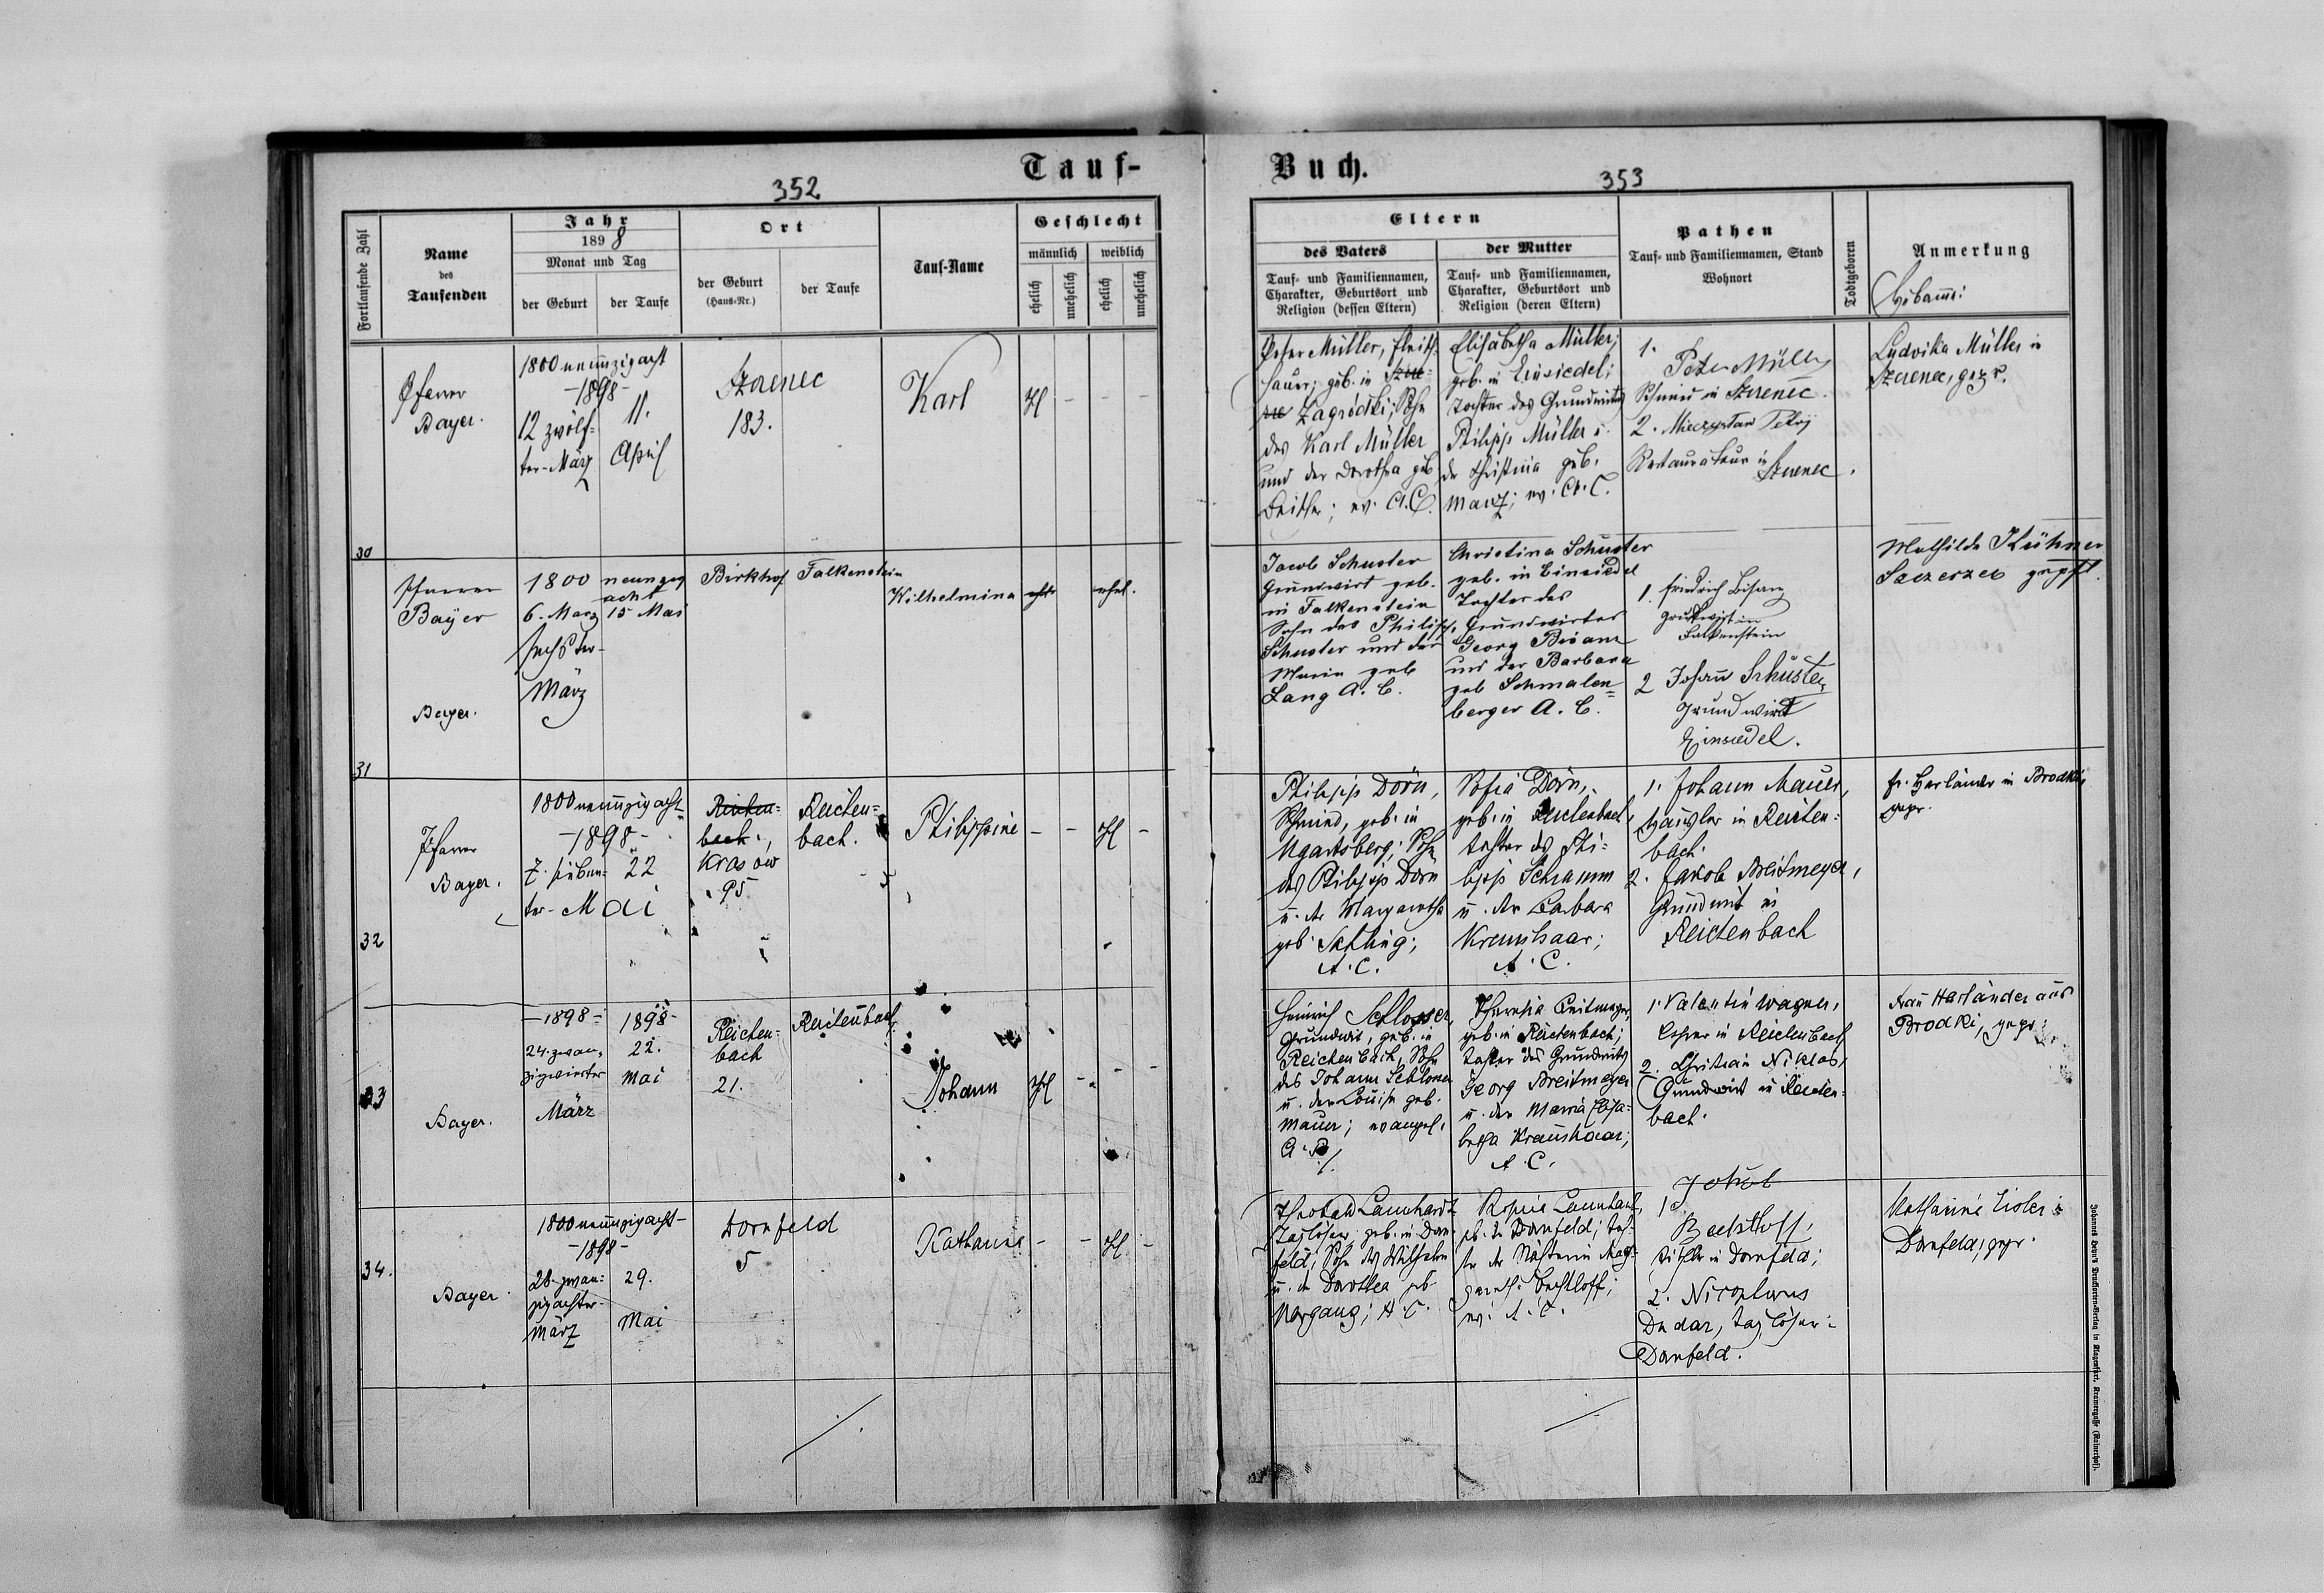 Tauf-
Buch.
352
353
Fortlaufende Zahl
Name
des
Taufenden
Jahr
1898
Monat und Tag
der Geburt
der Taufe
Ort
der Geburt
(Haus-Nr.)
der Taufe
Tauf-Name
Geschlecht
männlich
weiblich
ehelich
unehelich
ehelich
unehelich
Eltern
des Vaters
Tauf- und Familiennamen,
Charakter, Geburtsort und
Religion (dessen Eltern)
der Mutter
Tauf- und Familiennamen,
Charakter, Geburtsort und
Religion (deren Eltern)
Pathen
Tauf- und Familiennamen, Stand
Wohnort
Todtgeboren
Anmerkung
Hebamme:
30
Pfarrer
Bayer.
1800 neunzigacht
-1898-
12 zwölf-
ter-März
11.
April
Szczerzec
183.
Karl
- - -
Peter Müller,
geb. in
Zagródki; Sohn
des Karl Müller
und der Dorothea geb.
ev. A.C.
Elisabetha Müller;
geb. in Einsiedel;
Tochter des Grundwirts
Philipp Müller u.
der Christina geb.
Manz; ev. A.C.
1.
Peter Müller
Schmied in Szczerzec.
2. Mieczysław Petry
Restaurateur in
Szczerzec.
Ludvika Müller in
Szczerzec, gepr.
31
Pfarrer
Bayer
Bayer.
1800 neunzig
acht
6. März
15 Mai
sechster-
März
Birkhof
Falkenstein
Wilhelmina
ehel.
Jacob Schuster
Grundwirt geb.
in Falkenstein
Sohn des Philipp
Schuster und der
Maria geb
Lang A. C.
Christina Schuster
geb. in Einsiedel
Tochter des
Grundwirtes
Georg Bisanz
und der Barbara
geb Schmalen=
berger A. C.
1. Friedrich Bisanz
Grundwirt in
Falkenstein
2 Johann Schuster
Grundwirt
Einsiedel.
Mathilde Kühner
Szczerzec gepft.
32
Pfarrer
Bayer.
1800 neunzigacht
-1898-
7. sieben=
ter - Mai
22
Reichen=
bach.,
Krasów
95
Reichen=
bach.
Philippine
- - -
Philipp Dörn,
Schmied, geb. in
Ugartsberg; Sohn
des Philipp Dörn
u. der Margaretha
geb.
A. C.
Sofia Dörn,
geb. in Reichenbach,
Tochter des Phi=
lipp Schramm
u. der Barbara
Kraushaar;
A. C.
1. Johann Mauer,
Häusler in Reichen=
bach.
2. Jakob Breitmeyer,
Grundwirt in
Reichenbach
Fr. Harländer in Brodki,
gepr.
33
Bayer.
-1898-
24. zwan=
zigvierter
März
1898-
22.
Mai
Reichen=
bach
21.
Reichenbach
Johann
- - -
Heinrich Schlosser,
Grundwirt, geb. in
Reichenbach, Sohn
des Johann Schlosser
u. der Louise geb.
Mauer; evangel.
A. B.
Theresia Breitmeyer,
geb. in Reichenbach;
Tochter des Grundwirts
Georg Breitmeyer
u. der Maria Elisa=
betha Kraushaar;
A. C.
1. Valentin Wagner,
Lehrer in Reichenbach
2. Christian Niklas,
Grundwirt in Reichen=
bach.
Frau Harländer aus
Brodki, gepr.
34.
Bayer
1800 neunzigacht-
-1898-
28. zwan=
zigachter-
März
29.
Mai
Dornfeld
5
Katharina
- - -
Theobald Launhardt
Taglöhner, geb. in Dorn=
feld; Sohn des Wilhelm
u. der Dorothea geb
Morgang; A. C.
Launhardt,
geb. in Dornfeld; Toch=
ter der Näherin Mar=
gareth. Bechtloff;
ev. A. C.
1. Jakob
Bechtloff,
in Dornfeld;
2.
Dudar, Taglöhner in
Dornfeld.
Katharine Eisler in
Dornfeld, gepr.
Johannes Heyn's Drucksorten-Verlag in Klagenfurt, Kramergasse (Rainerhof).